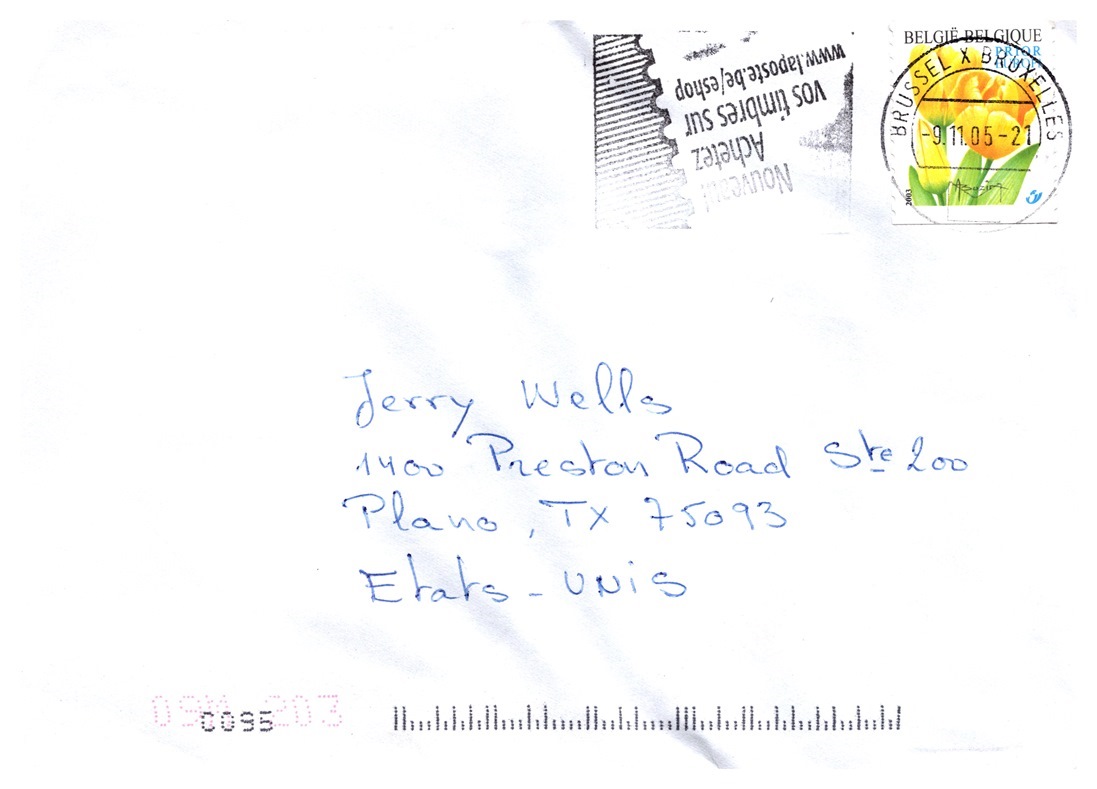 BELGIË BELGIQUE
PRIOR
BRUSSEL X BRUXELLES
-9.11.05-21
2003
Nouveau!
Achetez
vos timbres sur
www.laposte.be/eshop
Jerry Wells
1400 Preston Road Ste 200
Plano, TX 75093
Etats-UNiS
C095